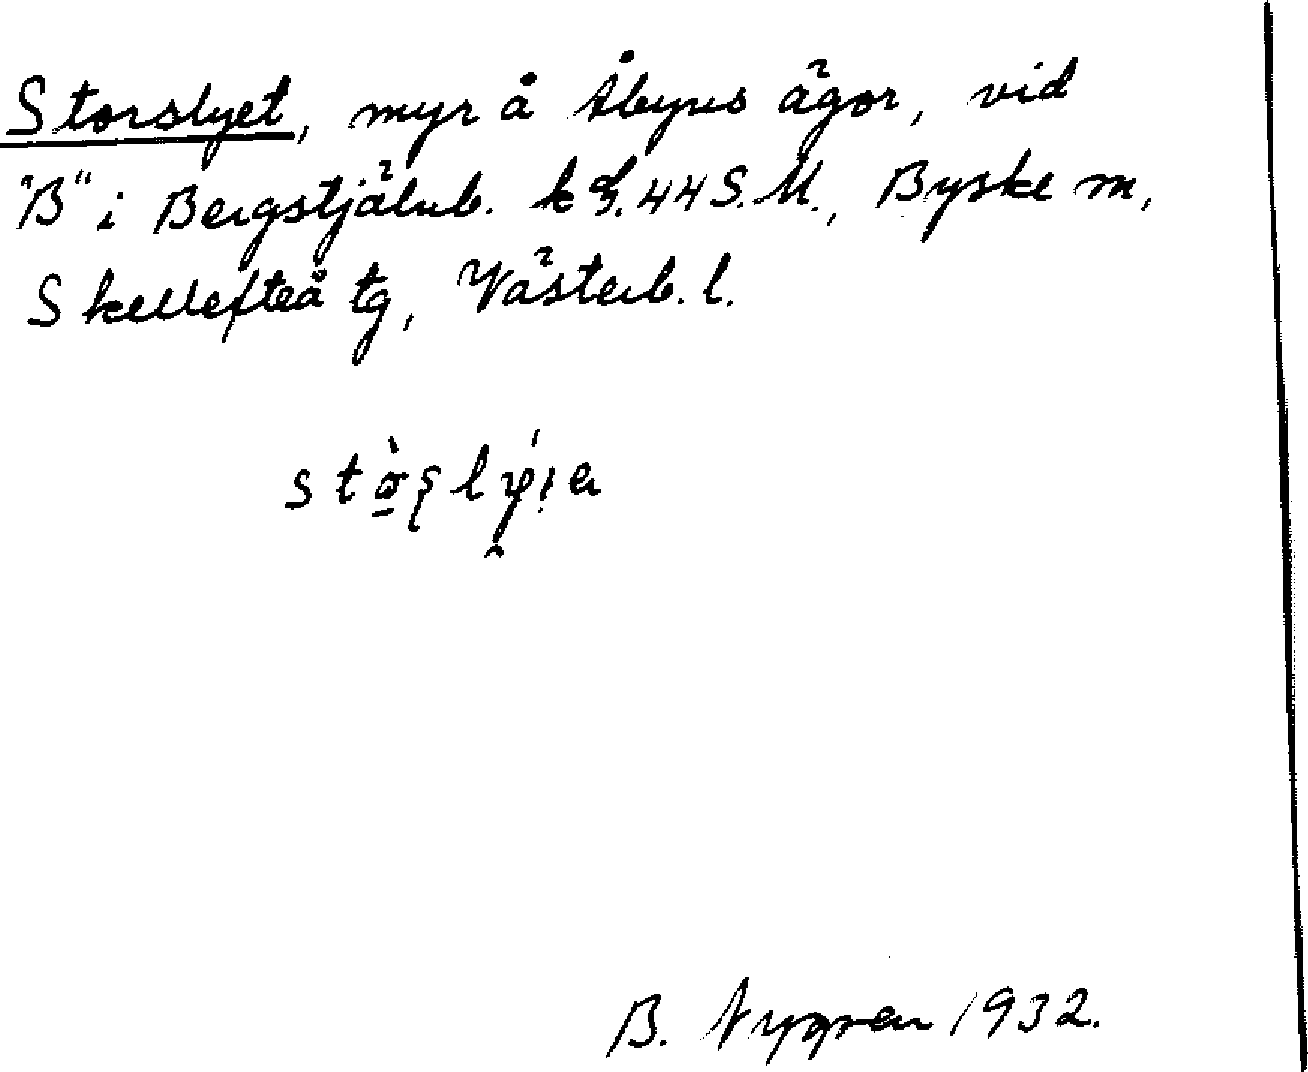 Storslyet, myr å Åbyns ägor, vid
"B" i Bergstjälnb. k 44 S.M., Byske m,
Skellefteå tg, Västerb. l.
B. Nygren 1932.